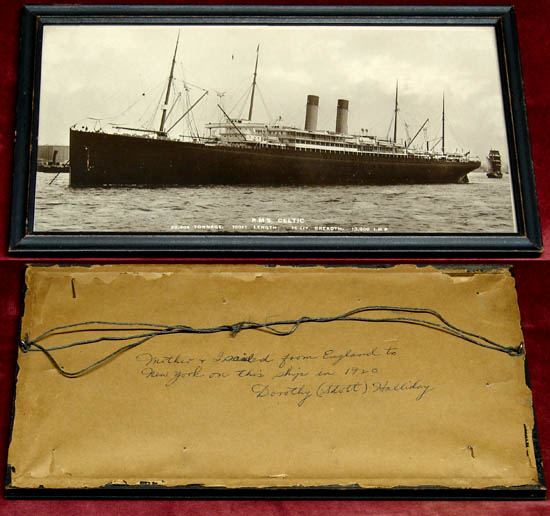 R.M.S. CELTIC
TONNAGE. 700FT. LENGTH. BREADTH. I.H.P.
Mother & I sailed from England to
New York on this ship in 1920
Dorothy (Adott) Halliday